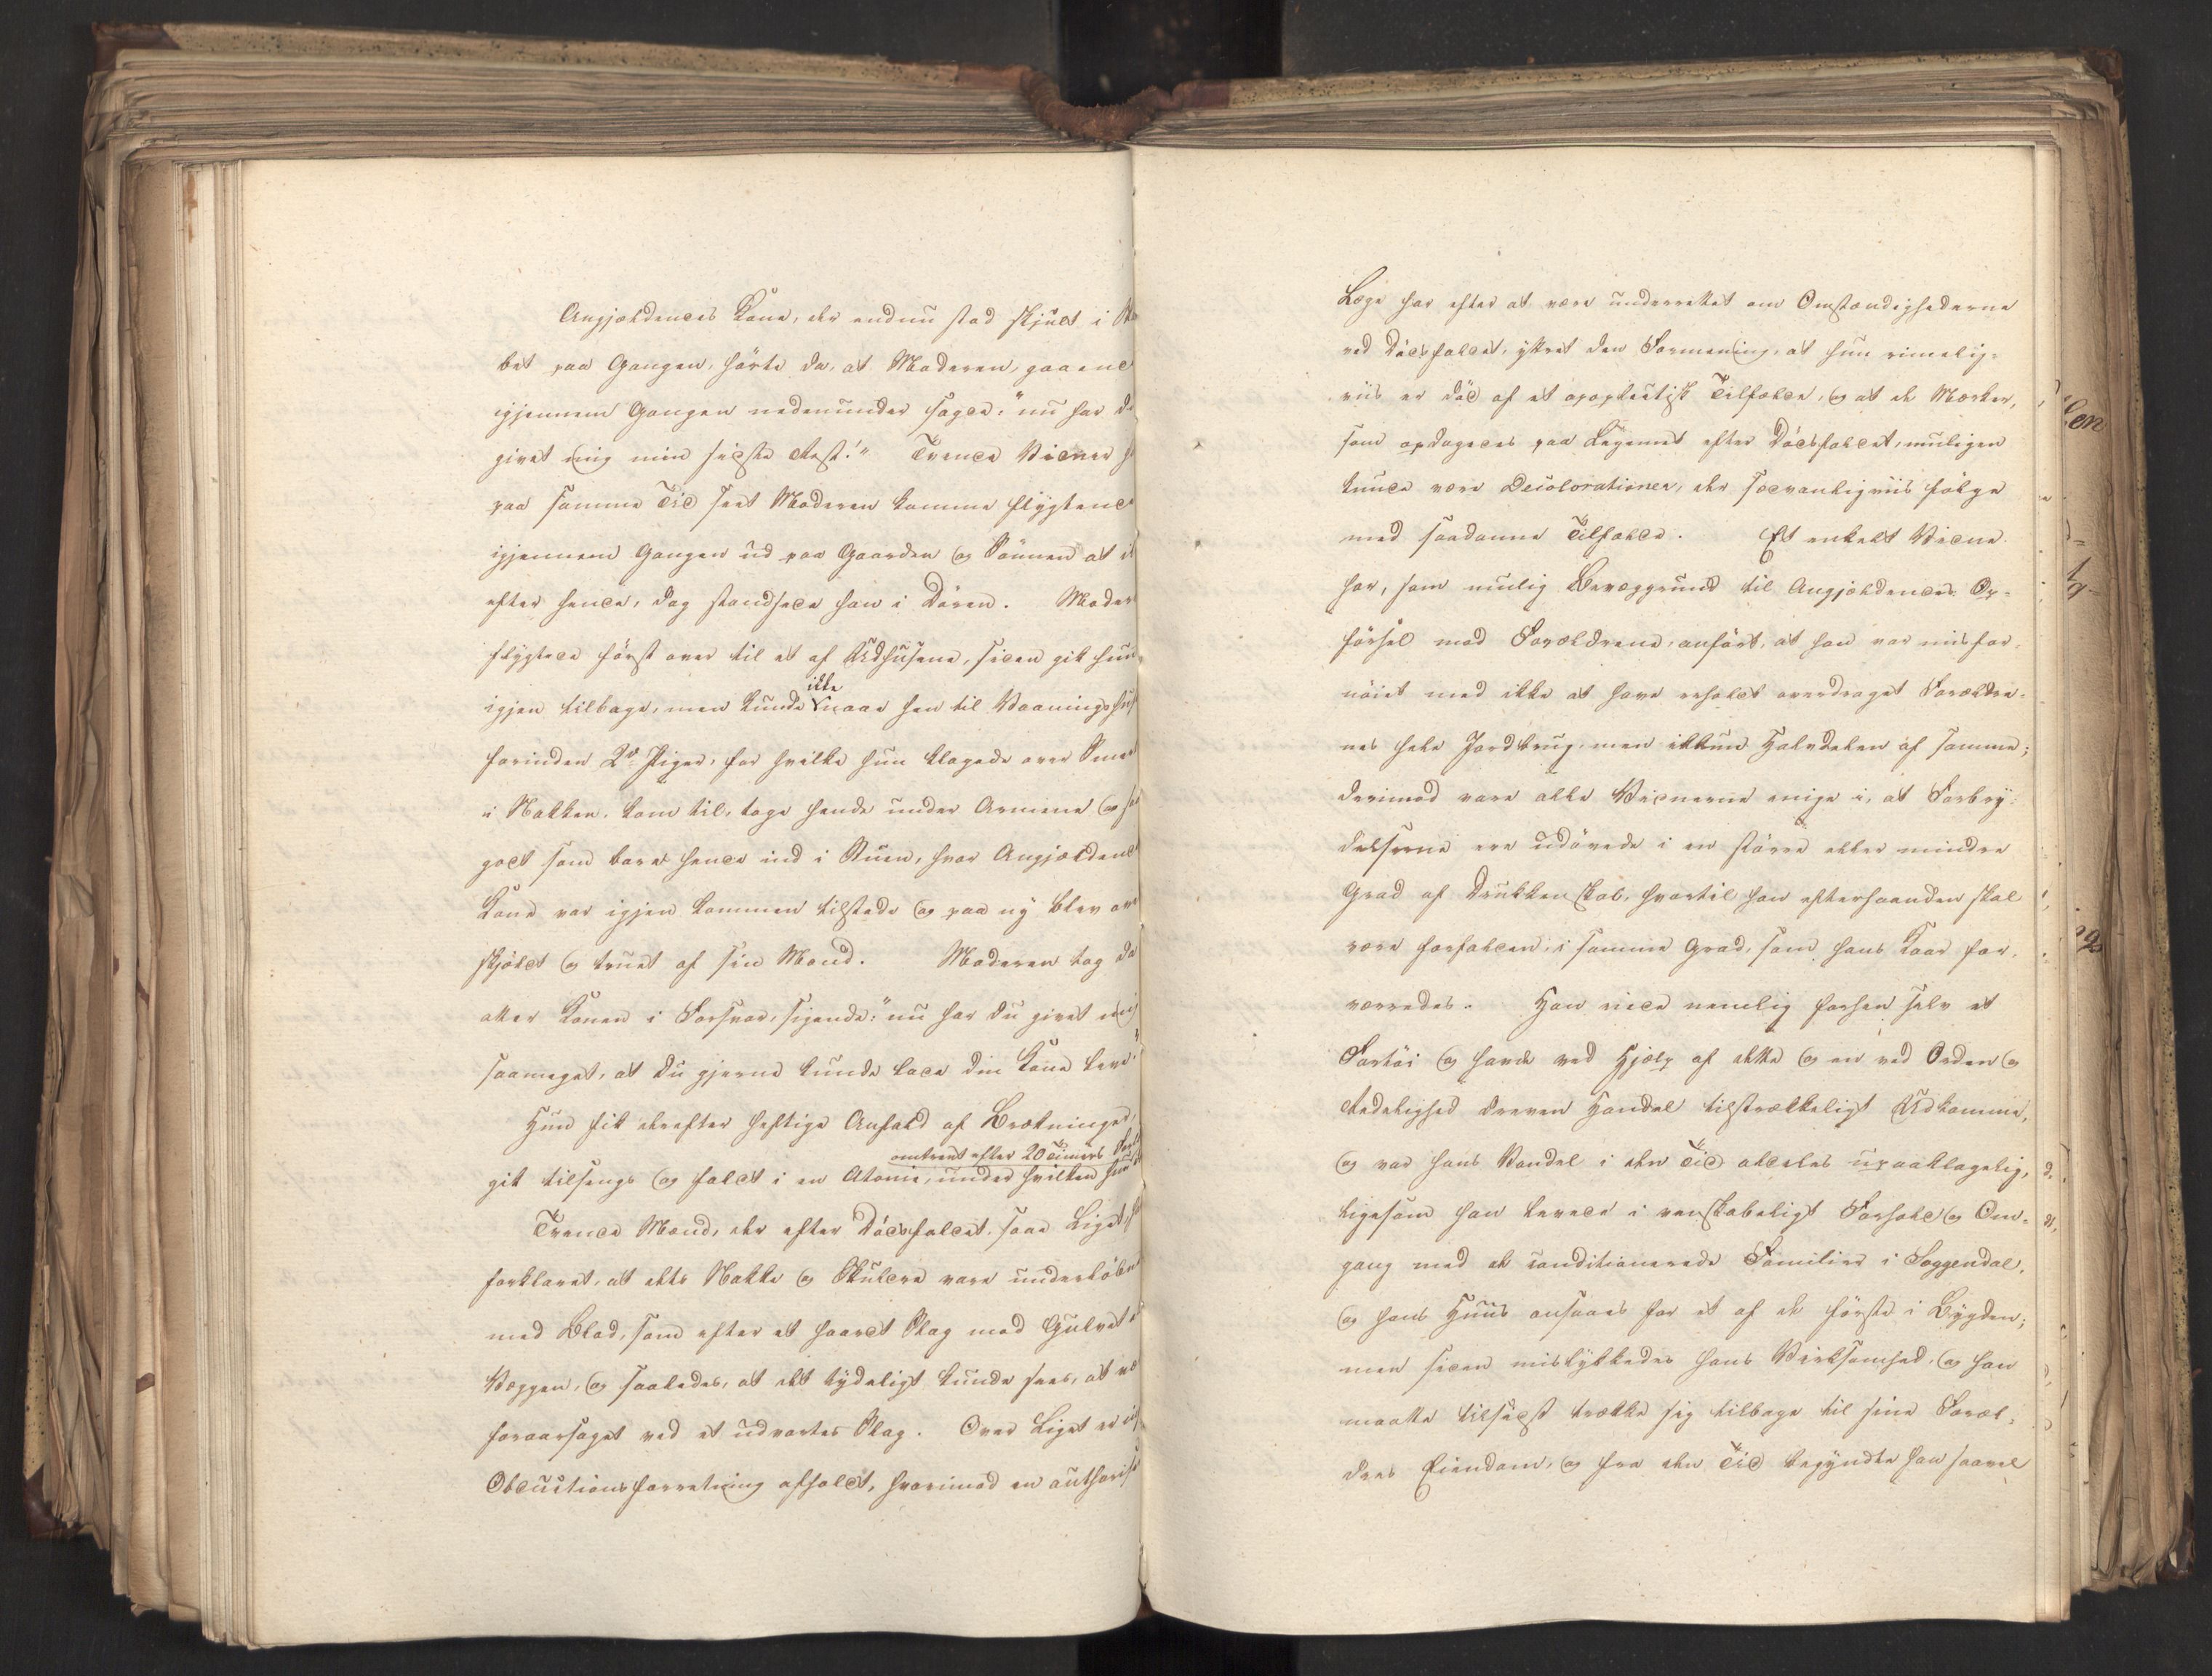 Angjældendes Kone, der endnu stod skjult i
bet paa Gangen, hørte da, at Moderen, gaaende
igjennem Gangen nedenunder sagde: "nu har du
givet mig min sidste Rest!" Trende Vidner
paa samme Tid seet Moderen komme flygtende
igjennem Gangen ud paa Gaarden og Sønnen at
efter hende, dog standsede han i Døren. Moder
flygtede først over til et af Udhusene, siden gik hun
igjen tilbage, men kunde ikke naae hen til Vaaningshus
forinden 2de Piger, for hvilke hun klagede over Smer
i Nakken, kom til, toge hende under Armene og
godt som baret hende ind i Stuen, hvor Angjældende
Kone var igjen kommen tilstede og paa ny blev
skjældt og truet af sin Mand. Moderen tog da
atter Konen i Forsvar, sigende: "nu har du givet mig
saameget, at du gjerne kunde lade din Kone leve."
Hun fik derefter heftige Anfald af Brækninger,
gik tilsengs og faldt i en Atonie, under hvilken hun omtrent efter 20 Timers
Trende Mænd, der efter Dødsfaldet, saae Liget,
forklaret, at dets Nakke og Skuldre vare underløbne
med Blod, som efter et haardt Slag mod Gulvet
Væggen, og saaledes, at det tydeligt kunde sees, at
foraarsaget ved et udvortes Slag. Over Liget er
Obductionsforretning afholdt, hvorimod en authoris
Læge har efter at være underrettet om Omstændighederne
ved Dødsfaldet, yttret den Formening, at hun rimelig-
viis er død af et apoplectisk Tilfælde, og at de Mærker,
som opdagedes paa Legemet efter Dødsfaldet, muligen
kunde være Decolorationer, der sædvanligviis følge
med saadanne Tilfælde. Et enkelt Vidne
har, som mulig Bevæggrund til Angjældendes Op-
førsel mod Forældrene, anført, at han var misfor-
nøiet med ikke at have erholdt overdraget Forældre-
nes hele Jordbrug, men ikkun Halvdelen af samme;
derimod vare alle Vidnerne enige i, at Forbry-
delserne ere udøvede i en større eller mindre
Grad af Drukkenskab, hvortil han efterhaanden skal
være forfalden, i samme Grad, som hans Kaar for-
værredes. Han eiede nemlig forhen selv et
Fartøi og havde ved Hjælp af dette og en ved Orden og
Redelighed dreven Handel tilstrækkeligt Udkomme,
og var hans Vandel i den Tid aldeles upaaklagelig,
ligesom han levede i venskabeligt Forhold og Om-
gang med de conditionerede Familier i Soggendal,
og hans Huus ansaaes for et af de første i Bygden;
men siden mislykkedes hans Virksomhed, og han
maatte tilsidst trække sig tilbage til sine Foræl-
dres Eiendom, og fra den Tid begyndte han saavel